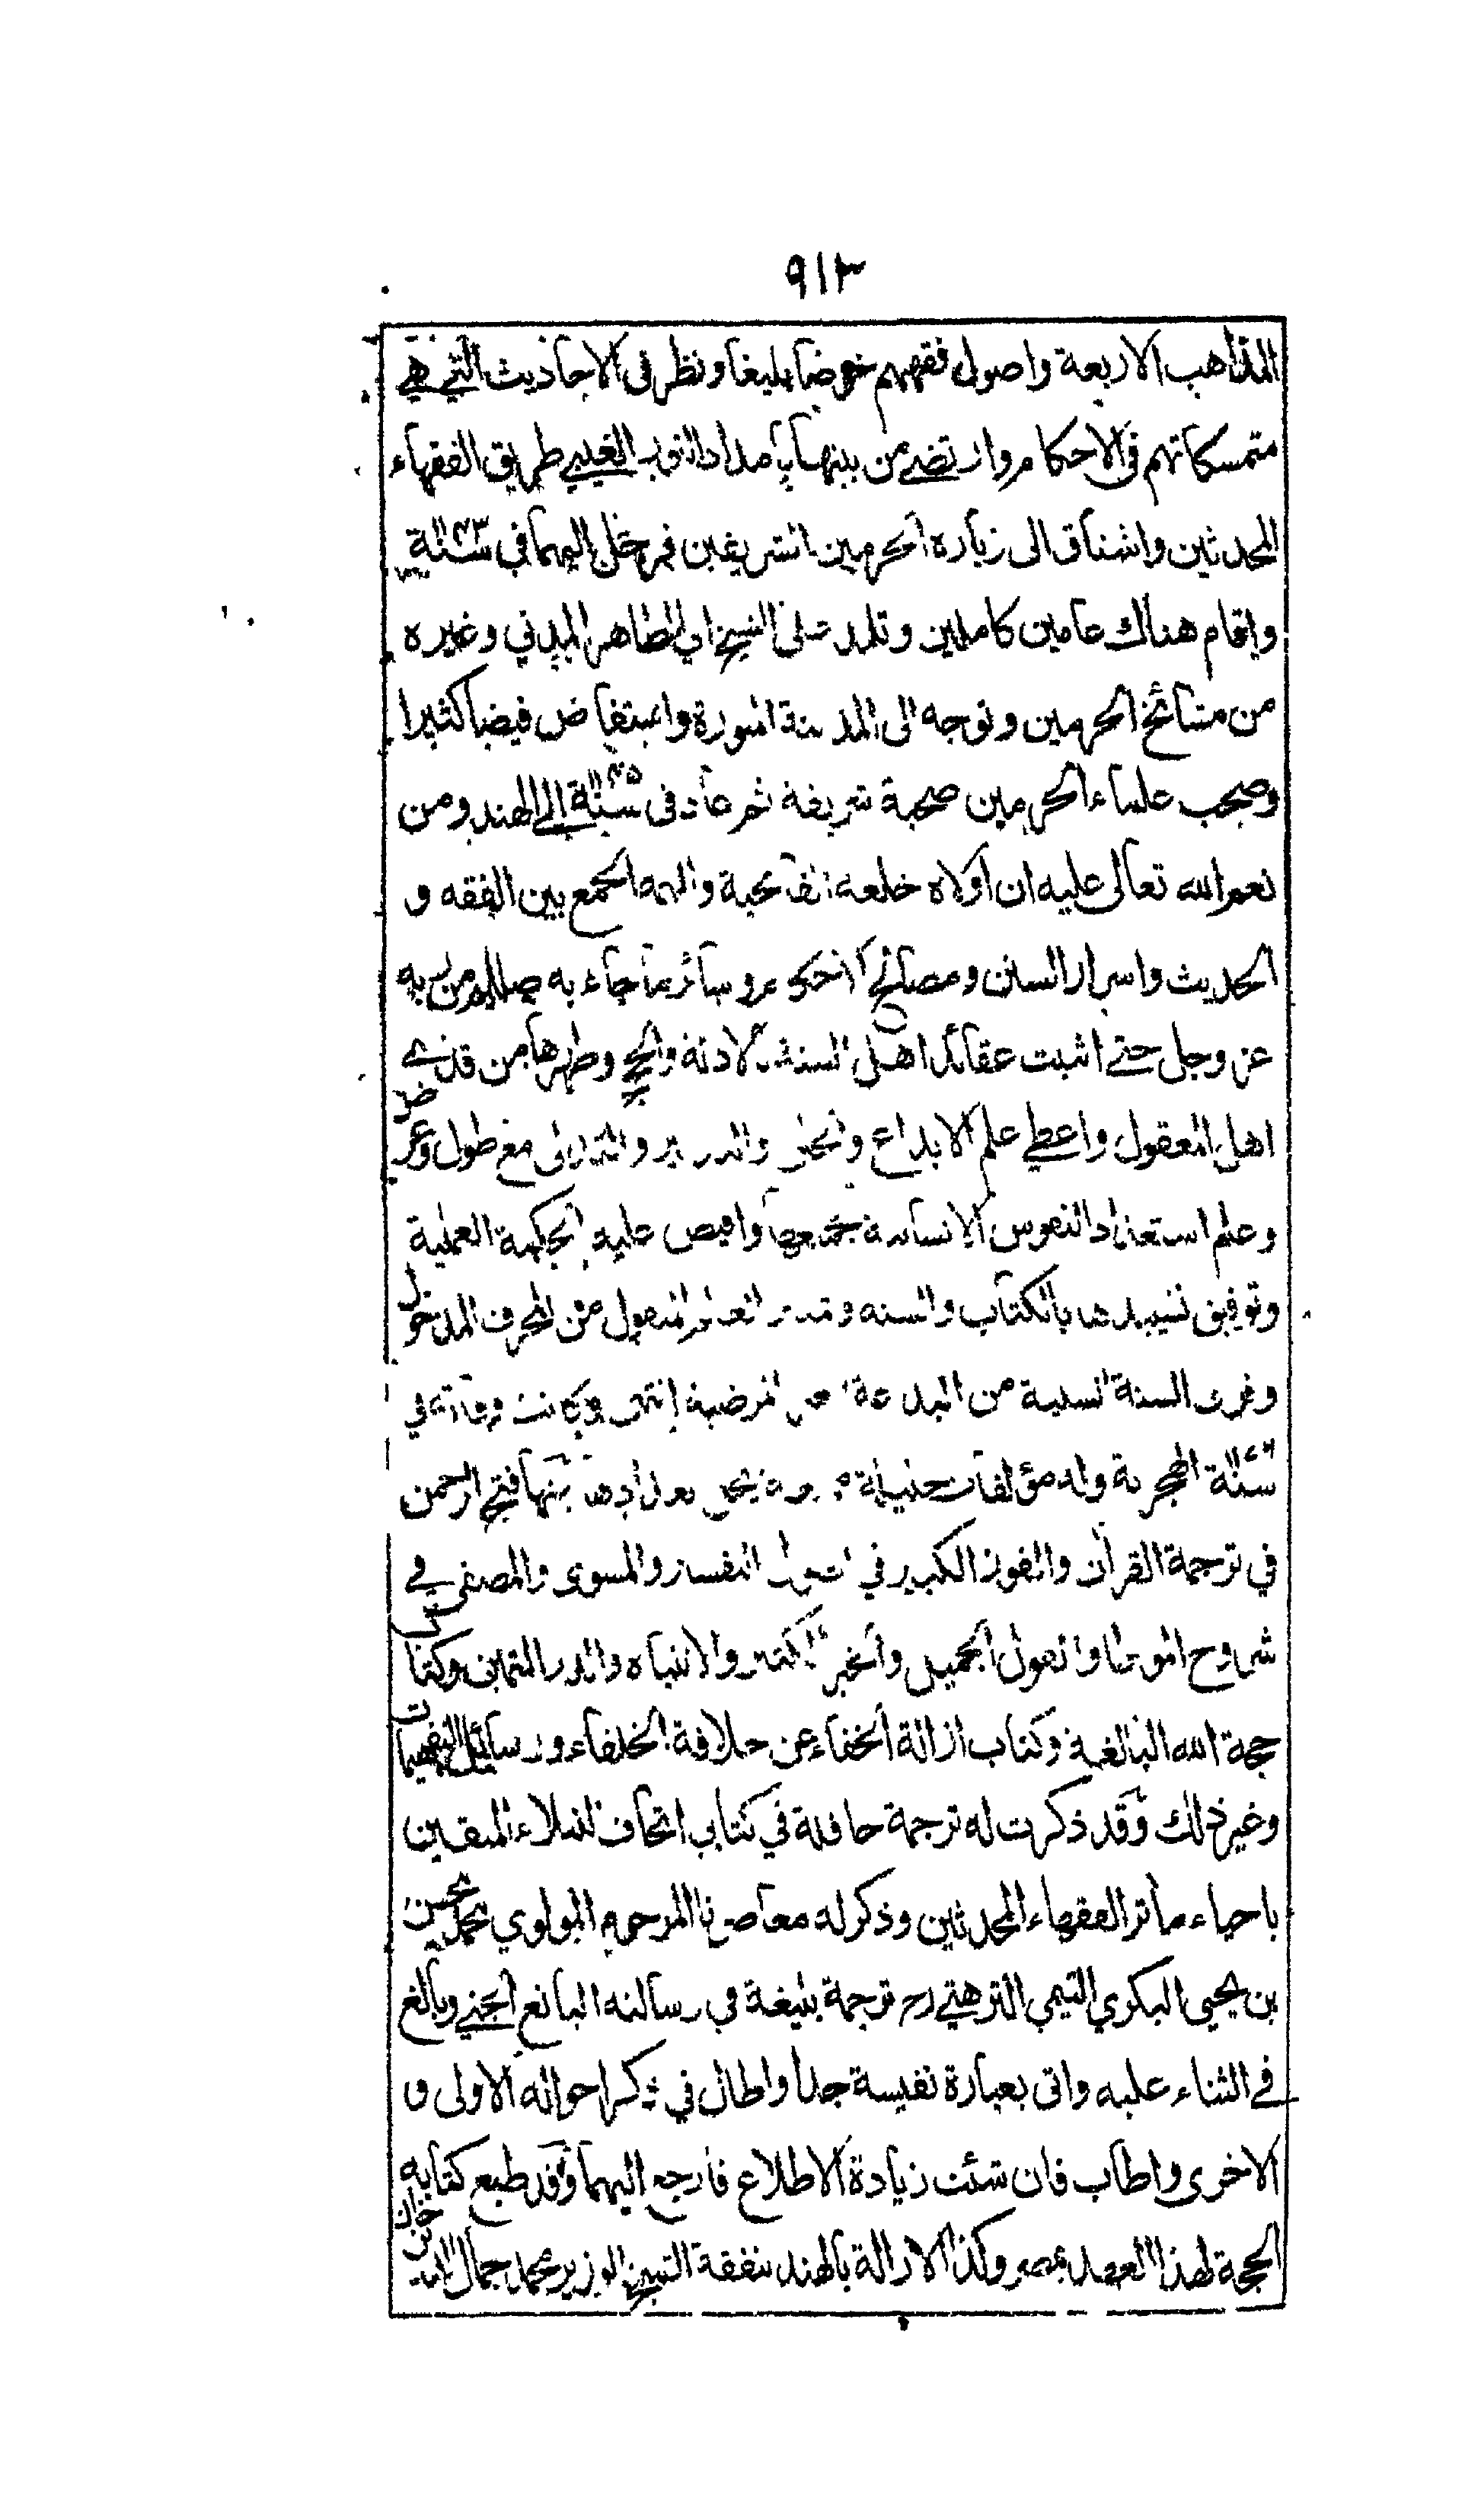 ٩١٣
المذاهب الاربعة واصول فقههم خوضا بليغا ونظر فى الاحاديث التي هي
متمسكاتهم فى الاحكام وارتضى من بينها بامداد النور الغيبي طريق الفقهاء
المحدثين واشتاق الى زيارة الحرمين الشريفين فرحل اليهما في سنة
واقام هناك عامين كاملين وتلمذ على الشيخ ابي الطاهر المدني وغيره
من مشائخ الحرمين وتوجه الى المدينة المنورة واستفاض فيضا كثيرا
وصحب علماء الحرمين صحبة شريفة ثم عاد فى سنة الى الهند ومن
نعم الله تعالى عليه ان اولاه خلعة الفاتحية والهمه الجمع بين الفقه و
الحديث واسرار السنن ومصالح الاحكام وسائر ما جاء به صللم من ربه
عز وجل حتى اثبت عقائد اهل السنة بالادلة والحجج وطهرها من قذى
اهل المعقول واعطي علم الابداع والخلق والتدبير والتدلى مع طول وعرض
وعلم استعداد النفوس الانسانية بجميعها وافيض عليه الحكمة العملية
وتوفيق تشييدها بالكتاب والسنة وتمييز العلم المنقول من المحرف المدخول
وفرق السنة السنية من البدعة الغير المرضية إنتهى وكانت وفاته في
سنة الهجرية وله مؤلفات جليلة منها فتح الرحمن
في ترجمة القرآن والفوز الكبير في اصول التفسير والمسوى والمصفى في
شروح الموطا والقول الجميل والخير الكثير والانتباه والدر الثمين وكتاب
حجة الله البالغة وكتاب ازالة الخفاء عن خلافة الخلفاء ورسائل التفهيمات
وغير ذلك وقد ذكرت له ترجمة حافلة في كتابي اتحاف النبلاء المتقين
باحياء مآثر الفقهاء المحدثين وذكر له معاصرنا المرحوم المولوي محمد محسن
بن يحيى البكري التيمي الترهتي رح ترجمة بليغة في رسالته اليانع الجني وبالغ
في الثناء عليه واتى بعبارة نفيسة جدا واطال في ذكر احواله الاولى و
الاخرى واطاب فان شئت زيادة الاطلاع فارجع اليهما وقد طبع كتابه
الحجة لهذا العهد بمصر وكذا الازالة بالهند بنفقة الشيخ الوزير محمد جمال الدين خان